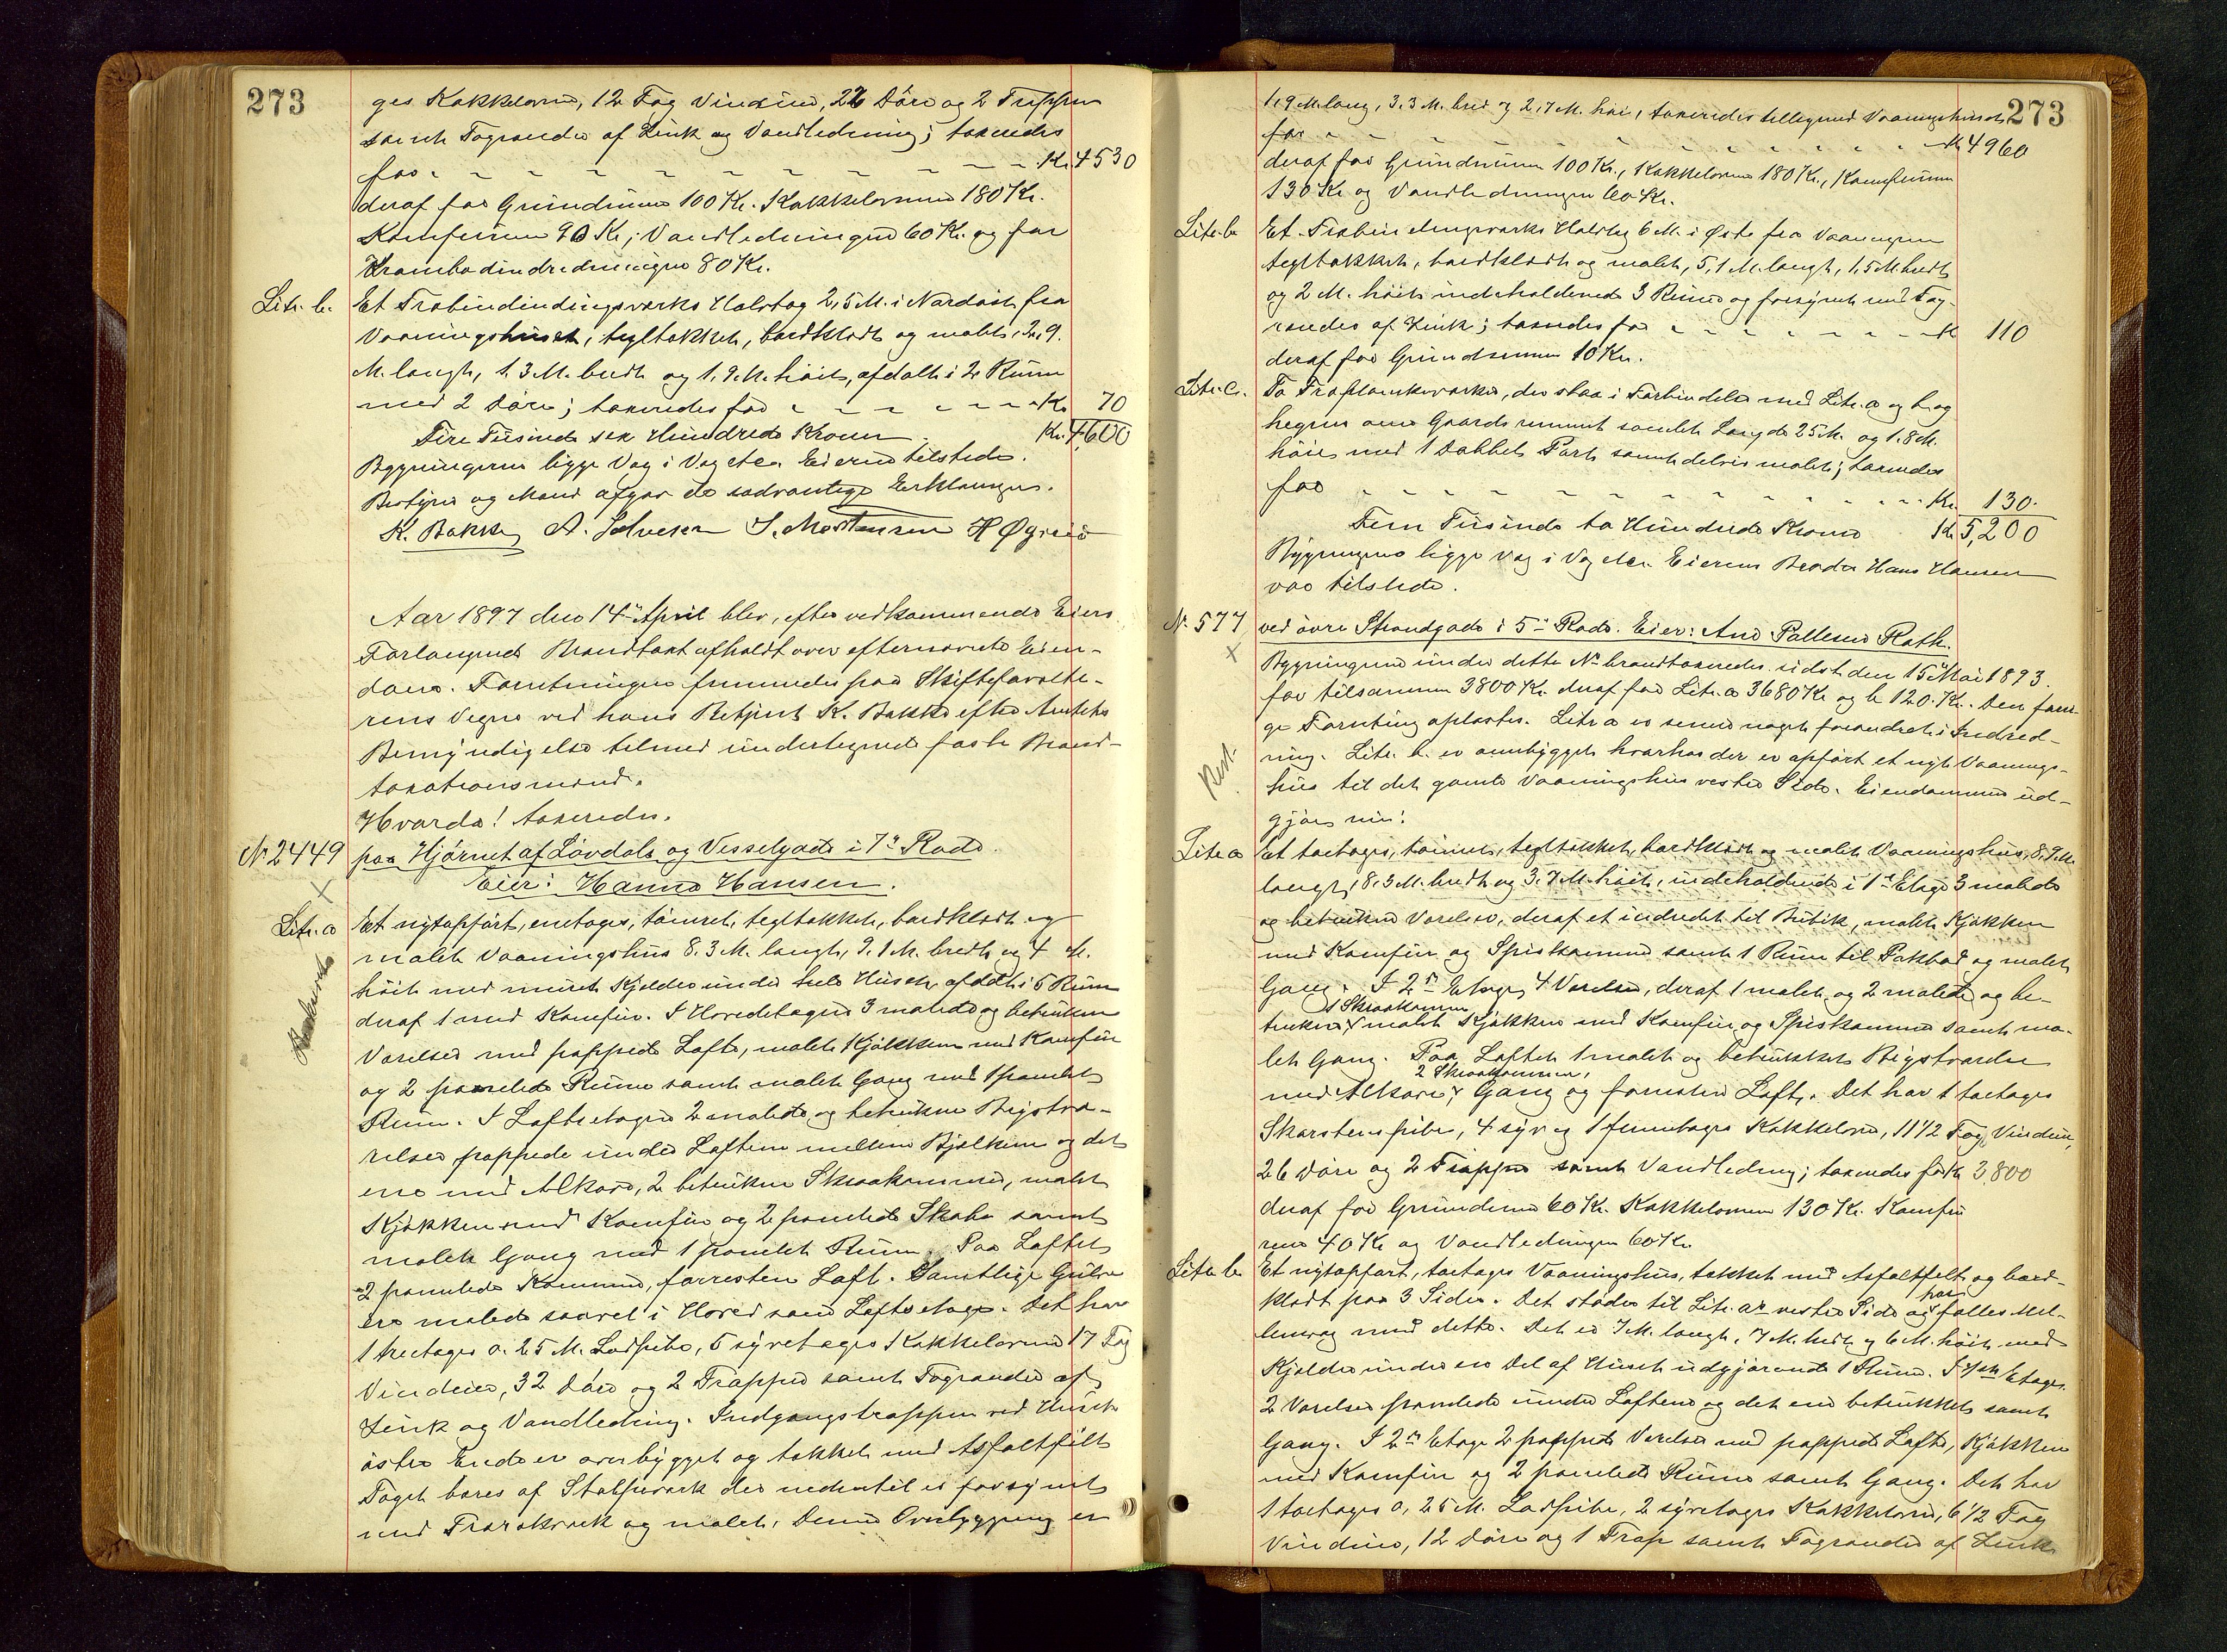 273
ges Kakkelovne, 12 Fag Vinduer, 22 Döre og 2 Trapper
samt Tagrender af Zink og Vandledning; taxeredes
for - - - - - - - - - - Kr. 4530
deraf for Grundmuren 100 Kr. Kakkelovnene 180 Kr.
Komfuren 90 Kr; Vandledningen 60 Kr. og for
Krambodindredningen 80 Kr.
Litr. b. Et Træbindindingsværks Halvtag 2,5 M. i Nordöst fra
Vaaningshuset, tegltækket, bordklædt og malet, 2,9.
M. langt, 1.3 M. bredt og 1.9 M. höit, afdelt i 2 Rum
med 2 Döre; taxeredes for - - - - - - - Kr. 70
Fire Tusinde sex Hundrede Kroner. Kr. 4,600
Bygningerne ligge Væg i Væg etc. Eieren tilstede.
Bestyrer og Mænd afgav de sædvanlige Erklæringer.
K. Bakke A. Salvesen S. Mortensen H Øgreid
Aar 1897 den 14de April blev, efter vedkommende Eiers
Forlangende Brandtaxt afholdt over efternævnte Eien-
dome. Forretningen fremmedes paa Skifteforvalte-
rens Vegne ved hans Betjent K. Bakke efter Amtets
Bemyndigelse tilmed undertegnede faste Brand-
taxationsmænd.
Hvorda! taxeredes.
No 2449 paa Hjörnet af Lövdals og Vesselgade i 7de Rode.
Eier: Hanna Hansen.
Litr. a Et nytopfört, enetages, tömret, tegltækket, bordklædt og
malet Vaaningshus 8.3 M. langt, 9.1 M. bredt og 4 M.
höit med muret Kjelder under hele Huset, afdelt i 5 Rum
deraf 1 med Komfur. I Hovedetagen 3 malede og betrukne
Værelser med pappede Lofte, malet Kjökken med Komfur
og 2 panelede Rum samt malet Gang med 1 panelet
Rum. I Loftsetagen 2 malede og betrukne Bigsvæ-
relser pappede under Loftene mellem Bjelkerne og det
ene med Alkove, 2 betrukne Skraakammere, malet
Kjökken med Komfur og 2 panelede Skabe samt
malet Gang med 1 panelet Rum. Paa Loftet
2 panelede Kammere, forresten Loft. Samtlige Gulve
ere malede saavel i Hoved som Loftsetage. Det har
1 treetages o. 25 M. Lodpibe, 5 syvetages Kakkelovne 17 Fag
Vinduer, 32 Döre og 2 Trapper samt Tagrender af
Zink og Vandledning. Indgangstrappen ved Husets
östre Ende er overbygget og tækket med Asfaltfilt
Taget bæres af Stolpeværk der nedentil er forsynet
med Træværk og malet. Denne Overbygging er
273
1,9 M. lang, 3.3 M. bred og 2,7 M. höi, taxeredes tilligemed Vaaningshuset
for - - - - - - - - - - Kr 4960
deraf for Grundmuren 100 Kr., Kakkelovne 180 Kr., Komfurene
130 Kr og Vandledningen 60 Kr.
Litr. b. Et Træbindingsværks Halvtag 6 M. i Öst fra Vaaningen
tegltækket, bordklædt og malet, 5,1 M. langt, 1,5 M. bredt
og 2 M. höit indeholdende 3 Rum og forsynet med Tag-
render af Zink; taxeredes for - - - - - - - Kr 110
deraf for Grundmuren 10 Kr.
Litr. c. To Træplankeværker, der staa i Forbindelse med Litr. a og b og
hegner om Gaardsrummet samlet Længde 25 M. og 1.8 M.
höie med 1 dobbelt Port samt delvis malet; taxeredes
for - - - - - - - - - - Kr. 130.
Fem Tusinde to Hundrede Kroner Kr 5,200
Bygningerne ligge Væg i Væg etc. Eierens Broder Hans Hansen
var tilstede.
No 577 ved övre Strandgade i 5te Rode. Eier: Ane Pallesen Rath.
Bygningerne under dette No brandtaxeredes sidst den 15de Mai 1893.
for tilsammen 3800 Kr. deraf for Litr. a 3680 Kr og b 120 Kr. Den fori-
ge Forretning oplæstes. Litr a er senere noget forandret i Indred-
ning. Litr. b. er ombygget hvorhos der er opfört et nyt Vaanings-
hus til det gamle Vaaningshus vestre Side. Eiendommen ud-
gjör nu:
Litr. a Et toetages, tömret, tegltækket, bordklædt og malet Vaaningshus, 8,9 M.
langt, 8.3 M. bredt og 3.7 M. höit, indeholdende i 1ste Etage 3 malede
og betrukne Værelser, deraf et indredet til Butik, malet Kjökken
med Komfur og Spiskammer samt 1 Rum til Pakbod og malet
Gang. I 2den Etage, 4 Værelser, deraf 1 malet og 2 malede og be-
1 Skraakammer
trukne, malet Kjökken med Komfur og Spiskammer samt ma-
let Gang. Paa Loftet 1 malet og betrukket Bigsværelse
2 Skraakammere,
med Alkove, Gang og forresten Loft. Det har 1 toetages
Skorstenspibe, 4 syv og 1 femetages Kakkelovne, 11 1/2 Fag Vinduer,
26 Döre og 2 Trapper samt Vandledning; taxeredes for Kr 3,800
deraf for Grundmuren 60 Kr. Kakkelovnene 130 Kr. Komfu-
rene 40 Kr og Vandledningen 60 Kr.
Litr. b. Et nytopfört, toetages Vaaningshus, tækket med Asfaltfilt og bord-
klædt paa 3 Sider. Det stöder til Litr. a's vestre Side og har fælles Mel-
lemvæg med dette. Det er 7 M. langt, 7 M. bredt og 6 M. höit med
Kjelder under en Del af Huset udgjörende 1 Rum. I 1ste Etage
2 Værelser panelede under Loftene og det ene betrukket samt
Gang. I 2den Etage 2 pappede Værelser med pappede Lofte, Kjökken
med Komfur og 2 panelede Rum samt Gang. Det har
1 toetages 0,25 M. Lodpibe, 2 syvetages Kakkelovne, 6 1/2 Fag
Vinduer, 12 Döre og 1 Trap samt Tagrender af Zink